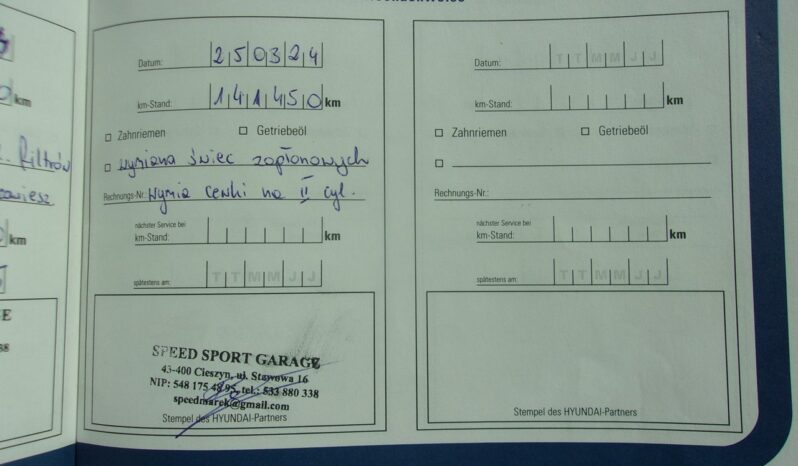 Datum: 250324
km-Stand: 141450 km
Zahnriemen Getriebeöl
wymiana świec zapłonowych
Rechnungs-Nr.: wymia cewki na II cyl.
nächster Service bei
km-Stand: km
spätestens am: T T M M J J
SPEED SPORT GARAGE
43-400 Cieszyn, ul. Stawowa 16
NIP: 548 175 48 95, tel.: 533 880 338
speedmarek@gmail.com
Stempel des HYUNDAI-Partners
Datum: T T M M J J
km-Stand: km
Zahnriemen Getriebeöl
Rechnungs-Nr.:
nächster Service bei
km-Stand: km
spätestens am: T T M M J J
Stempel des HYUNDAI-Partners
km
filtrów
km
E